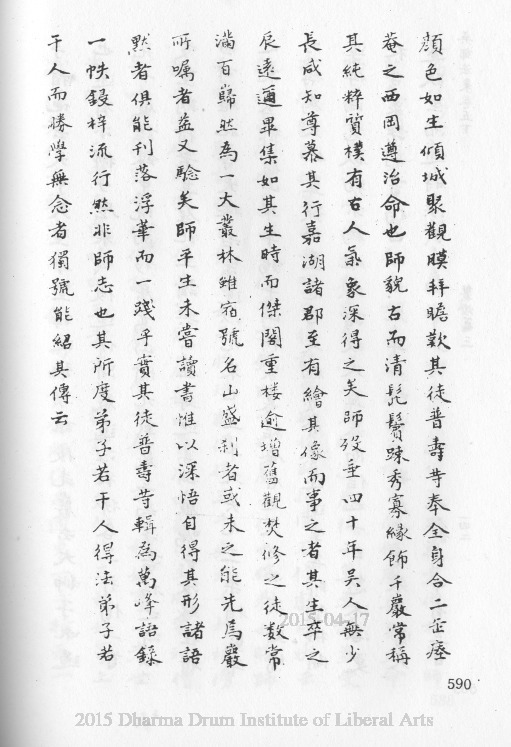 顏色如生傾城聚觀膜拜瞻歎其徒普壽等奉全身合二缶瘞
菴之西岡遵治命也師貌古而清髭鬢踈秀寡緣飾千巖常稱
其純粹質樸有古人氣象深得之矣師歿垂四十年吳人無少
長咸知尊慕其行嘉湖諸郡至有繪其像而事之者其生卒之
辰遠邇畢集如其生時而傑閣重楼逾增舊觀焚修之徒数常
滿百巋然為一大叢林雖宿號名山盛刹者或未之能先焉嚴
所嘱者益又騐矣師平生未嘗讀書惟以深悟自得其形諸語
默者俱能刊落浮華而一踐乎實其徒普壽等輯為萬峰語錄
一帙鋟梓流行然非師志也其所度弟子若干人得法弟子若
干人而勝學無念者獨號能紹其傳云
590
2015-04-17
2015 Dharma Drum Institute of Liberal Arts